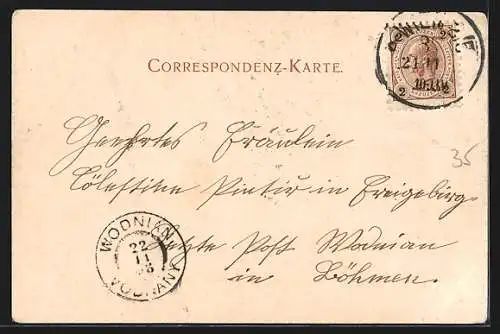 CORRESPONDENZ-KARTE.
2
21 11
2 2
35
Geehrtes Fräulein
Cölestine Pintir in Freigebirg
letzte Post Wodnian
in Böhmen.
WODNIAN
22
11
98
VODŇANY